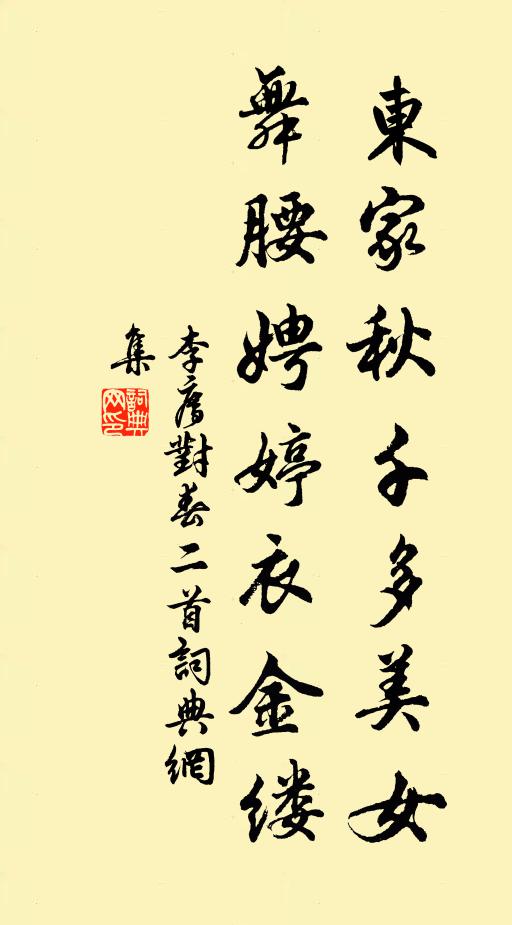 東家秋千多美女
舞腰娉婷衣金缕
李廌對春二首詞典網
集
詞典
网印